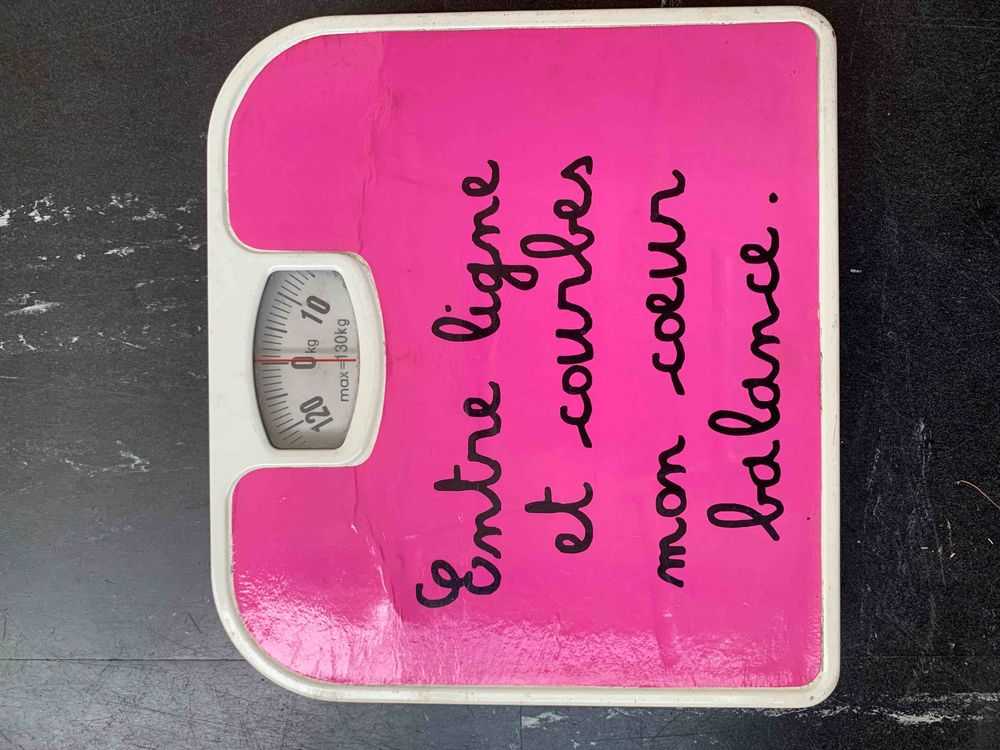 120 0 kg 10
max=130kg
Entre ligne
et courbes
mon cœur
balance.